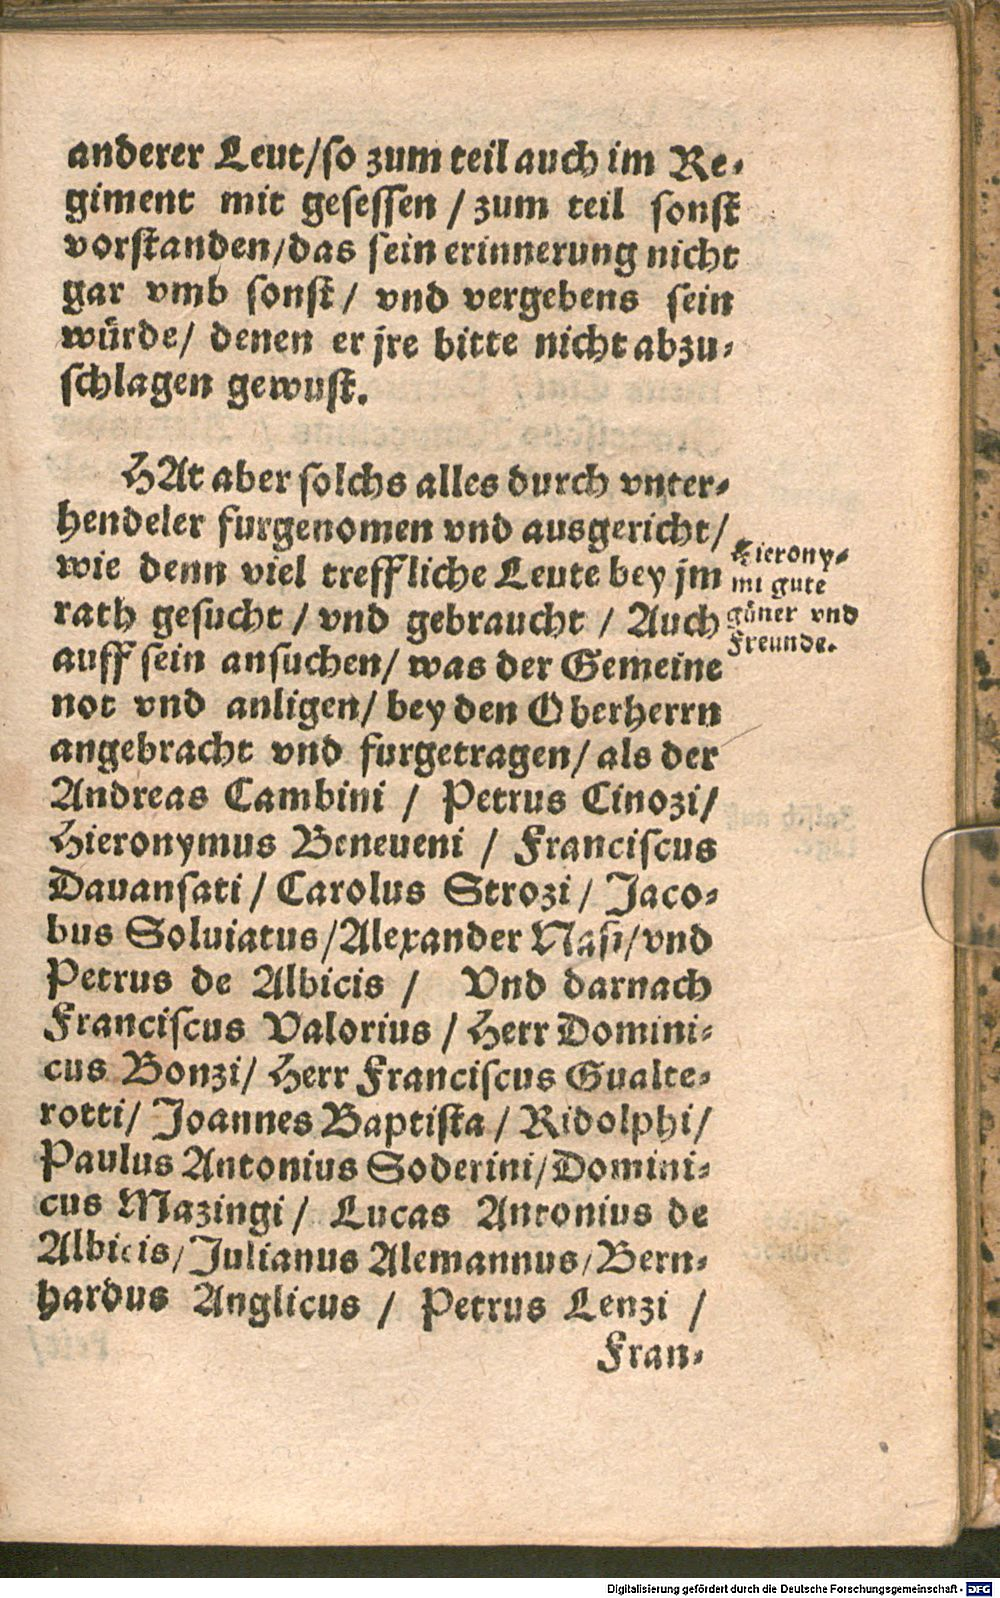 anderer Leut/so zum teil auch im Re-
giment mit gesessen / zum teil sonst
vorstanden/das sein erinnerung nicht
gar vmb sonst/ vnd vergebens sein
würde/ denen er jre bitte nicht abzu-
schlagen gewust.
HAt aber solchs alles durch vnter-
hendeler furgenomen vnd ausgericht/
wie denn viel treffliche Leute bey jm
rath gesucht / vnd gebraucht / Auch
auff sein ansuchen/ was der Gemeine
not vnd anligen/ bey den Oberherrn
angebracht vnd furgetragen/ als der
Andreas Cambini / Petrus Cinozi/
Hieronymus Beneueni / Franciscus
Dauansati / Carolus Strozi / Jaco-
bus Soluiatus/Alexander Nasi/vnd
Petrus de Albicis / Vnd darnach
Franciscus Valorius / Herr Domini-
cus Bonzi/ Herr Franciscus Gualte-
rotti/ Joannes Baptista / Ridolphi/
Paulus Antonius Soderini/Domini-
cus Mazingi / Lucas Antonius de
Albicis/Julianus Alemannus/Bern-
hardus Anglicus / Petrus Lenzi /
Fran-
Hierony-
mi gute
gůner vnd
Freunde.
Digitalisierung gefördert durch die Deutsche Forschungsgemeinschaft - DFG